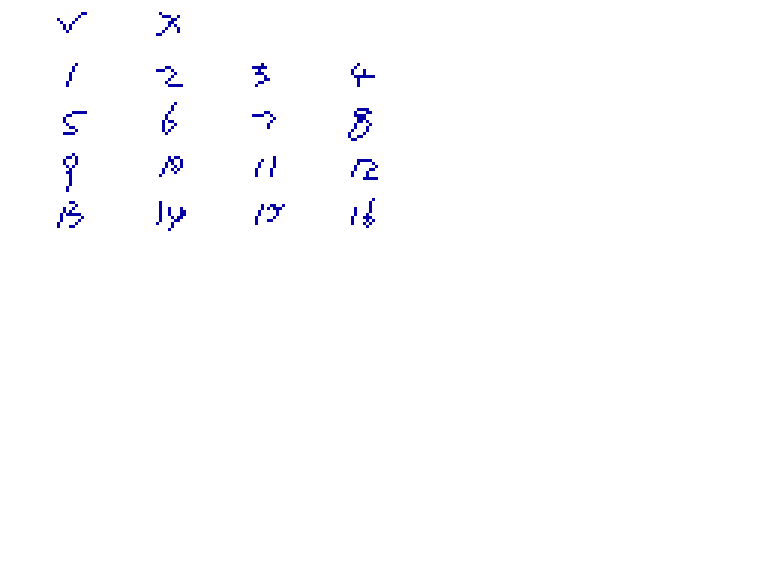 ✓ ×
1 2 3 4
5 6 7 8
9 10 11 12
13 14 15 16